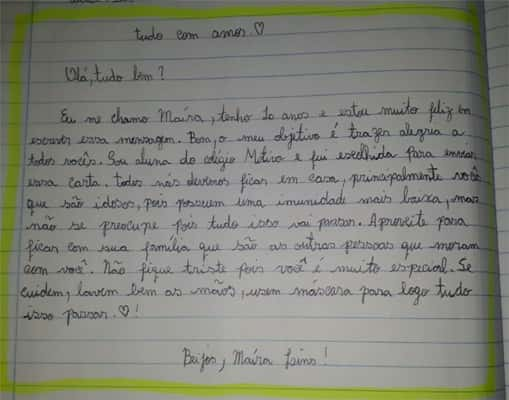 tudo com amor ♡
Olá, tudo bem?
Eu me chamo Maíra, tenho 10 anos e estou muito feliz em
escrever essa mensagem. Bom, o meu objetivo é trazer alegria a
todos vocês. Sou aluna do colégio Motivo e fui escolhida para enviar
essa carta. Todos nós devemos ficar em casa, principalmente vocês
que são idosos, pois possuem uma imunidade mais baixa, mas
não se preocupe pois tudo isso vai passar. Aproveite para
ficar com sua família que são as outras pessoas que moram
com você. Não fique triste pois você é muito especial. Se
cuidem, lavem bem as mãos, usem máscara para logo tudo
isso passar. ♡!
Beijos, Maíra Lins!